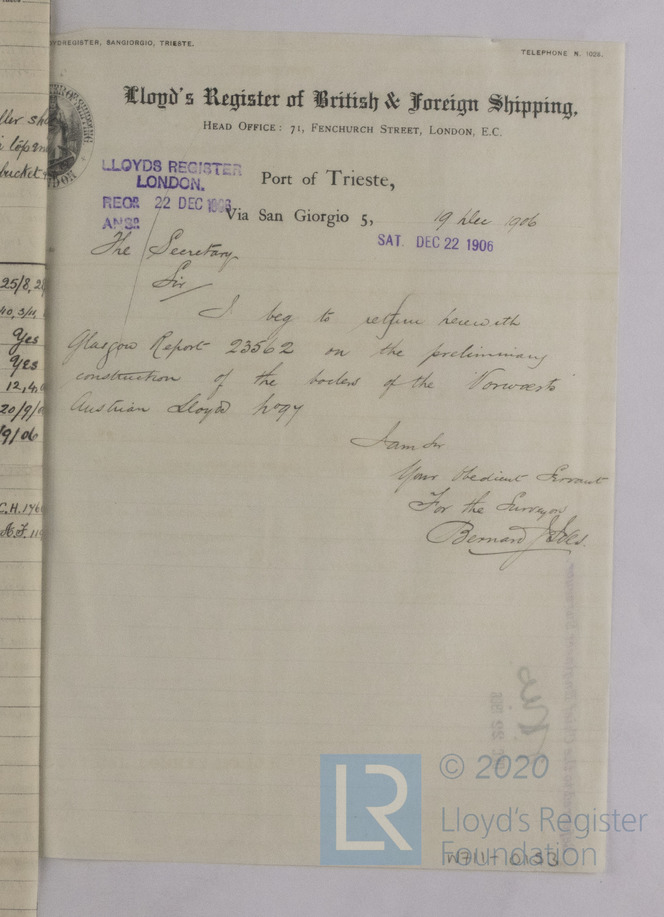 YDREGISTER, SANGIORGIO, TRIESTE.
TELEPHONE N. 1026.
Lloyd's Register of British & Foreign Shipping,
HEAD OFFICE: 71, FENCHURCH STREET, LONDON, E.C.
LLOYDS REGISTER
LONDON.
RECD 22 DEC 1906
ANSD
Port of Trieste,
Via San Giorgio 5, 19 Dec 1906
SAT. DEC 22 1906
The Secretary
Sir
I beg to return herewith
Glasgow Report 23562 on the preliminary
construction of the boilers of the "Vorwaerts"
Austrian Lloyd No 97
I am Sir
Your Obedient Servant
For the Surveyors
Bernard J. Ives.
top
bucket
25/8,
Yes
Yes
12,4,
20/9/
9/06
C.H. 176
LR
© 2020
Lloyd's Register
Foundation
W711-0153